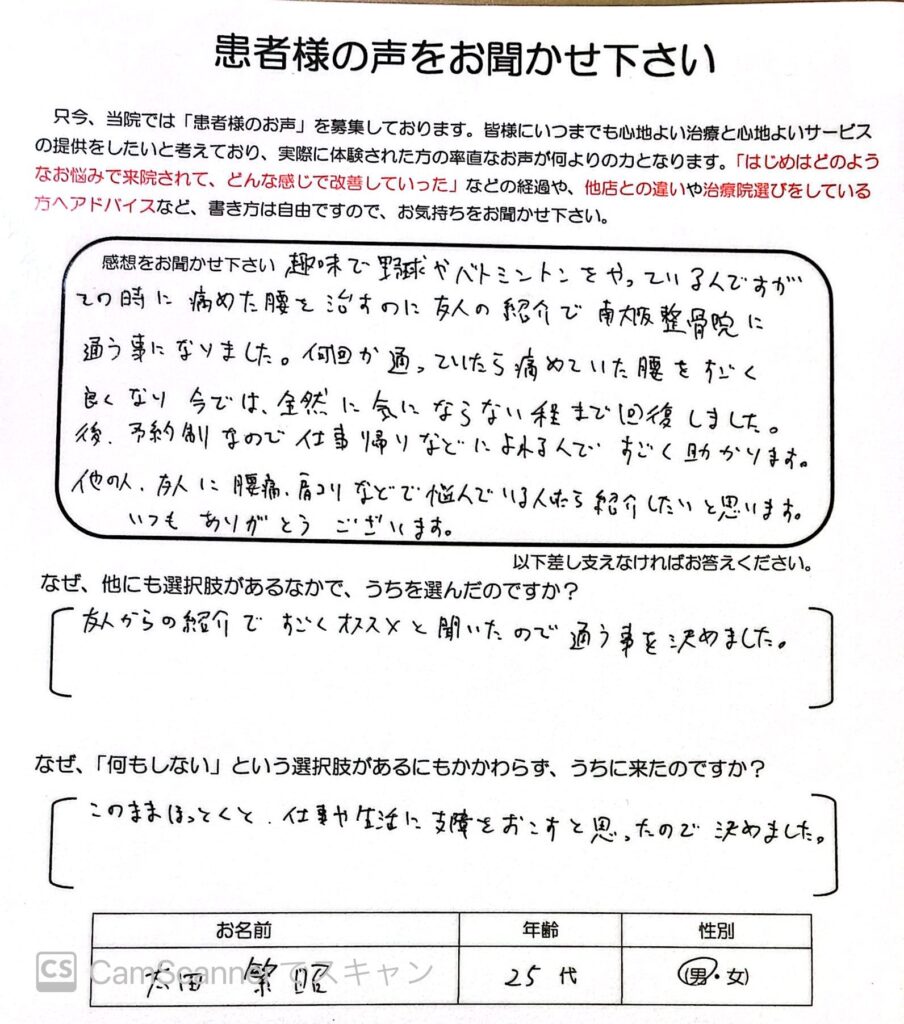 患者様の声をお聞かせ下さい
只今、当院では「患者様のお声」を募集しております。皆様にいつまでも心地よい治療と心地よいサービス
の提供をしたいと考えており、実際に体験された方の率直なお声が何よりの力となります。「はじめはどのよう
なお悩みで来院されて、どんな感じで改善していった」などの経過や、他店との違いや治療院選びをしている
方へアドバイスなど、書き方は自由ですので、お気持ちをお聞かせ下さい。
感想をお聞かせ下さい 趣味で野球やバトミントンをやっているんですが
その時に痛めた腰を治すのに友人の紹介で南大阪整骨院に
通う事になりました。何回か通っていたら痛めていた腰をすごく
良くなり今では、全然に気にならない程まで回復しました。
後、予約制なので仕事帰りなどによれるんですごく助かります。
他の人、友人に腰痛、肩コリなどで悩んでいる人いたら紹介したいと思います。
いつもありがとうございます。
以下差し支えなければお答えください。
なぜ、他にも選択肢があるなかで、うちを選んだのですか？
友人からの紹介ですごくオススメと聞いたので通う事を決めました。
なぜ、「何もしない」という選択肢があるにもかかわらず、うちに来たのですか？
このままほっとくと、仕事や生活に支障をおこすと思ったので決めました。
お名前 年齢 性別
太田 繁昭 25代 (男・女)
CS CamScannerでスキャン